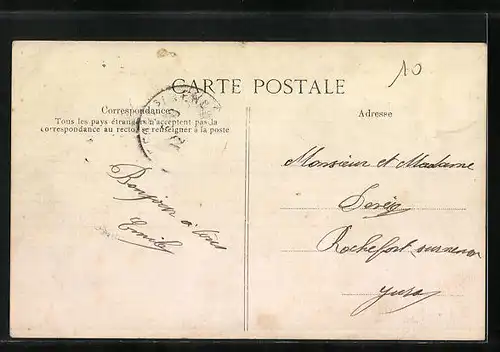 10
CARTE POSTALE
Correspondance
Tous les pays étrangers n'acceptent pas la
correspondance au recto, se renseigner à la poste
Adresse
Bonjour à tous
Emile
Monsieur et Madame
Rochefort sur nenon
Jura